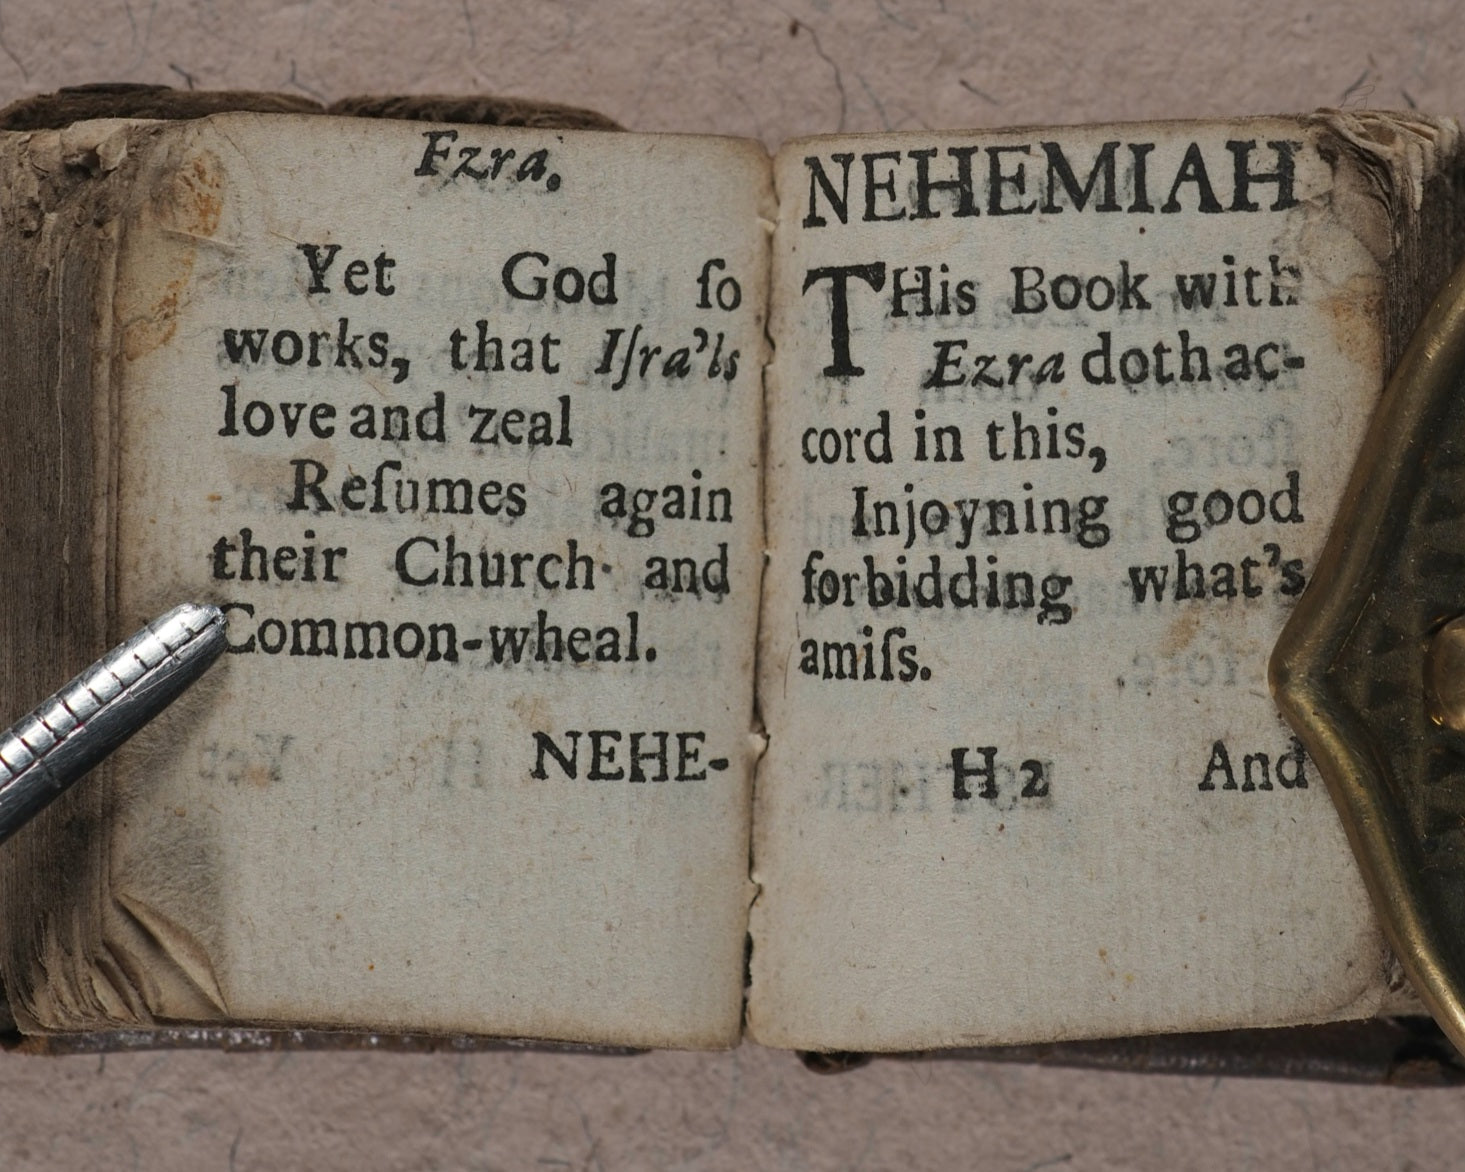 Ezra.
Yet God ſo
works, that Iſra'ls
love and zeal
Reſumes again
their Church and
Common-wheal.
NEHE-
NEHEMIAH
THis Book with
Ezra doth ac-
cord in this,
Injoyning good
forbidding what's
amiſs.
H 2 And